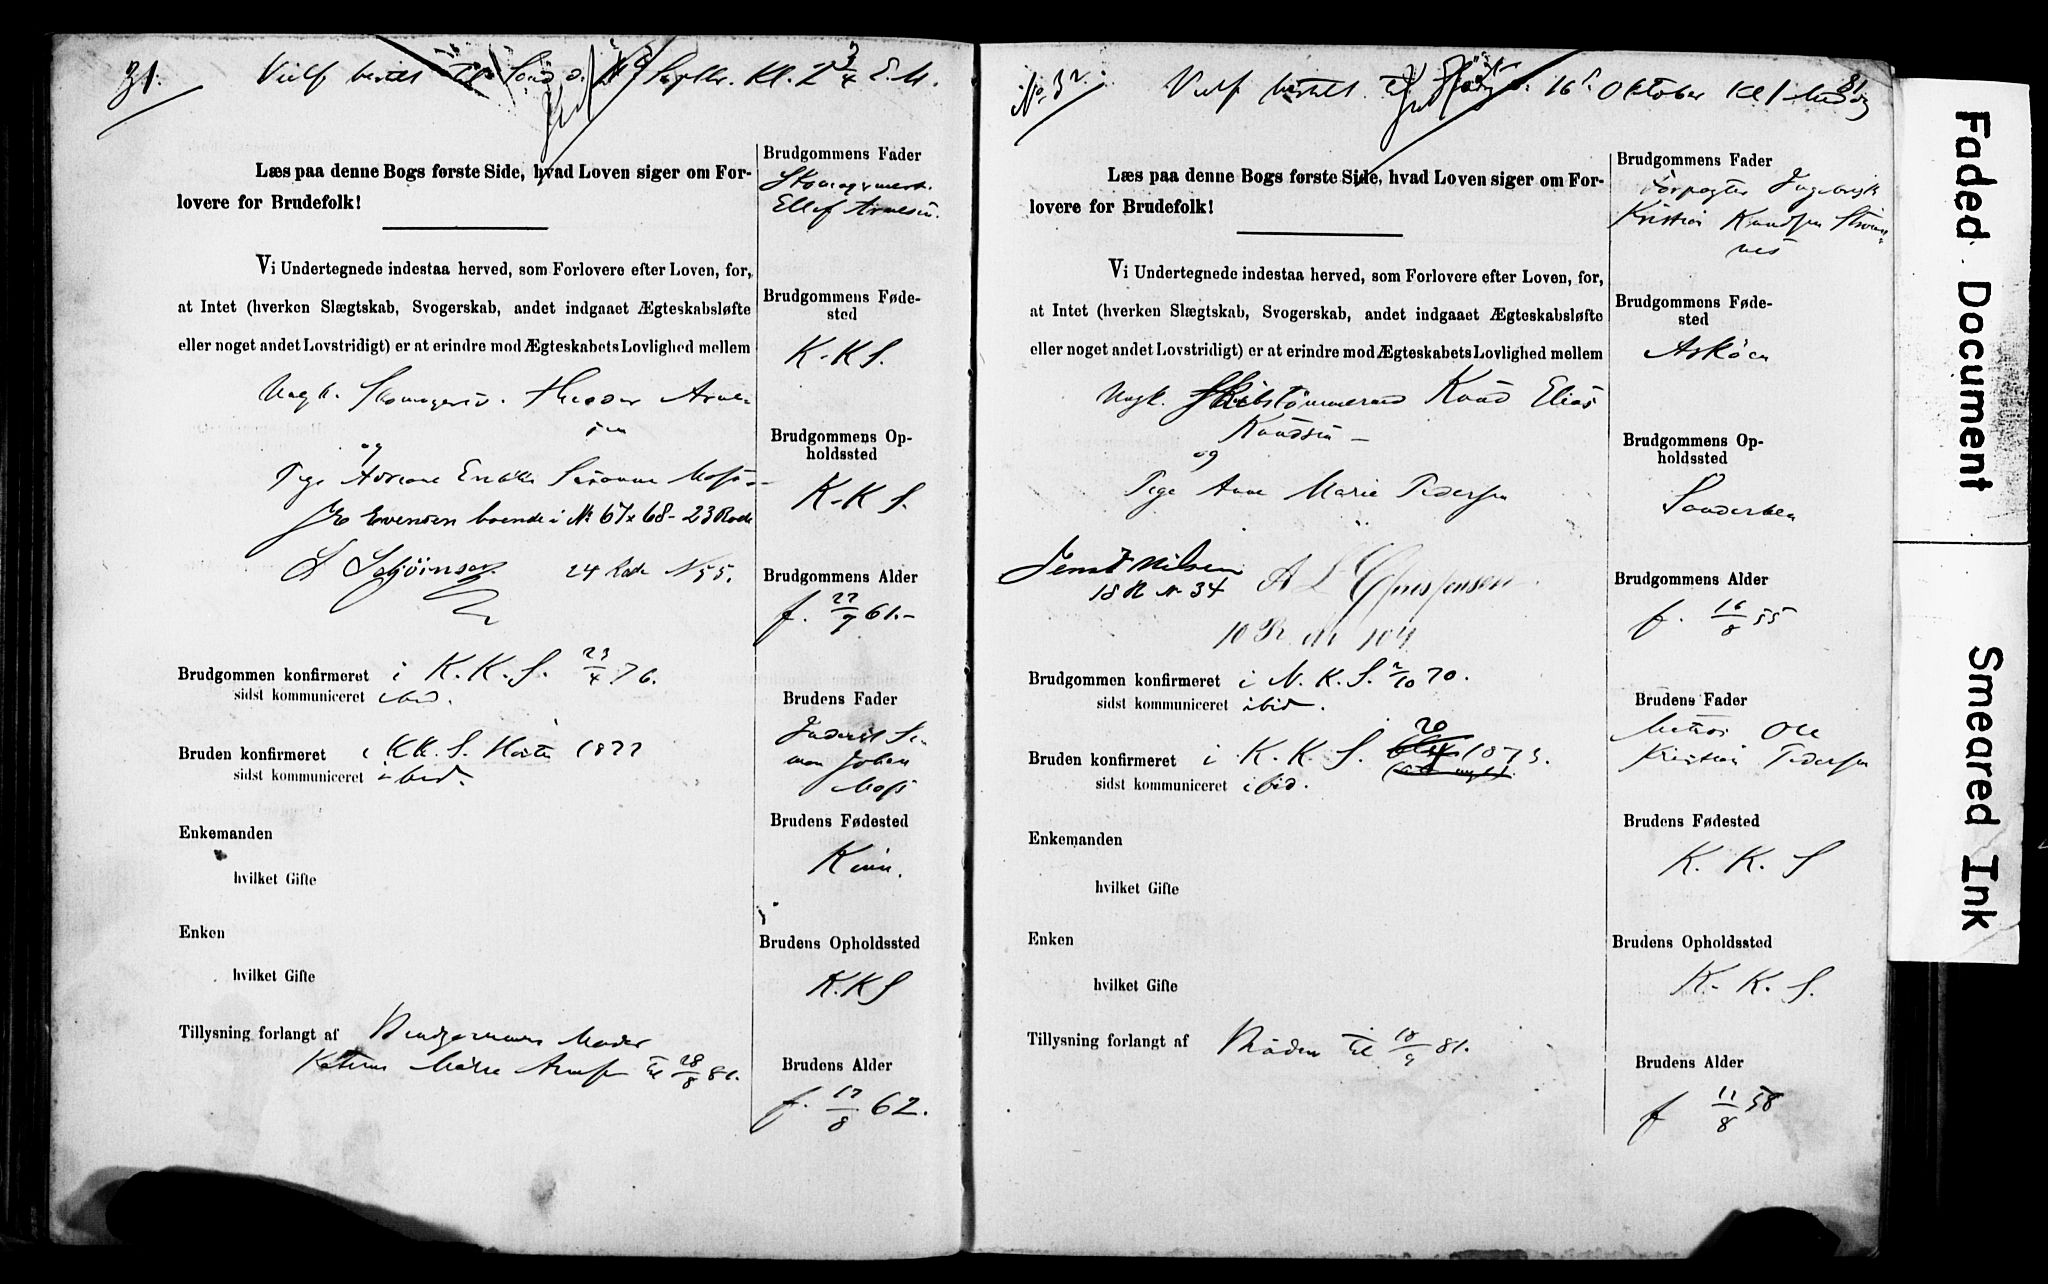 31.
Vielf bestilt Kl. 2 3/4 E.M.
Læs paa denne Bogs første Side, hvad Loven siger om For-
lovere for Brudefolk!
Vi Undertegnede indestaa herved, som Forlovere efter Loven, for,
at Intet (hverken Slægtskab, Svogerskab, andet indgaaet Ægteskabsløfte
eller noget andet Lovstridigt) er at erindre mod Ægteskabets Lovlighed mellem
Ungk. Theodor Arne-
sen
og
Pige Adriane
boende i No 67 x 68 - 23 Rode
24 Rode N 55.
Brudgommen konfirmeret i K.K.S. 23/4 76.
sidst kommuniceret ibid.
Bruden konfirmeret i K.K.S. Høst 1877
sidst kommuniceret ibid.
Enkemanden
hvilket Gifte
Enken
hvilket Gifte
Tillysning forlangt af Brudgommens Moder
til 28/8 81.
Brudgommens Fader
Skomagermest.
Ellef Arnesen.
Brudgommens Føde-
sted
K.K.S.
Brudgommens Op-
holdssted
K.K.S.
Brudgommens Alder
f. 22/9 61.
Brudens Fader
Johan
Brudens Fødested
Kinn.
Brudens Opholdssted
K.K.S
Brudens Alder
f. 17/8 62.
No. 32.
Vielf bestilt 16d Oktober Kl 1 Middag
81
Læs paa denne Bogs første Side, hvad Loven siger om For-
lovere for Brudefolk!
Vi Undertegnede indestaa herved, som Forlovere efter Loven, for,
at Intet (hverken Slægtskab, Svogerskab, andet indgaaet Ægteskabsløfte
eller noget andet Lovstridigt) er at erindre mod Ægteskabets Lovlighed mellem
Ungk. Skibstømmermd Knud Elias
Knudsen
og
Pige Anne Marie Pedersen
Nilsen
18 R N. 34
A L
Brudgommen konfirmeret i N.K.S. 2/10 70.
sidst kommuniceret ibid.
Bruden konfirmeret i K.K.S. 1873.
sidst kommuniceret ibid.
Enkemanden
hvilket Gifte
Enken
hvilket Gifte
Tillysning forlangt af Bruden til 18/9 81.
Brudgommens Fader
Forpagter Ingebrigt
Kristian Knudsen
Brudgommens Føde-
sted
Askøen
Brudgommens Op-
holdssted
Brudgommens Alder
f. 16/8 55
Brudens Fader
Matros Ole
Kristian Pedersen
Brudens Fødested
K.K.S
Brudens Opholdssted
K.K.S.
Brudens Alder
f 11/8 58
Faded Document
Smeared Ink